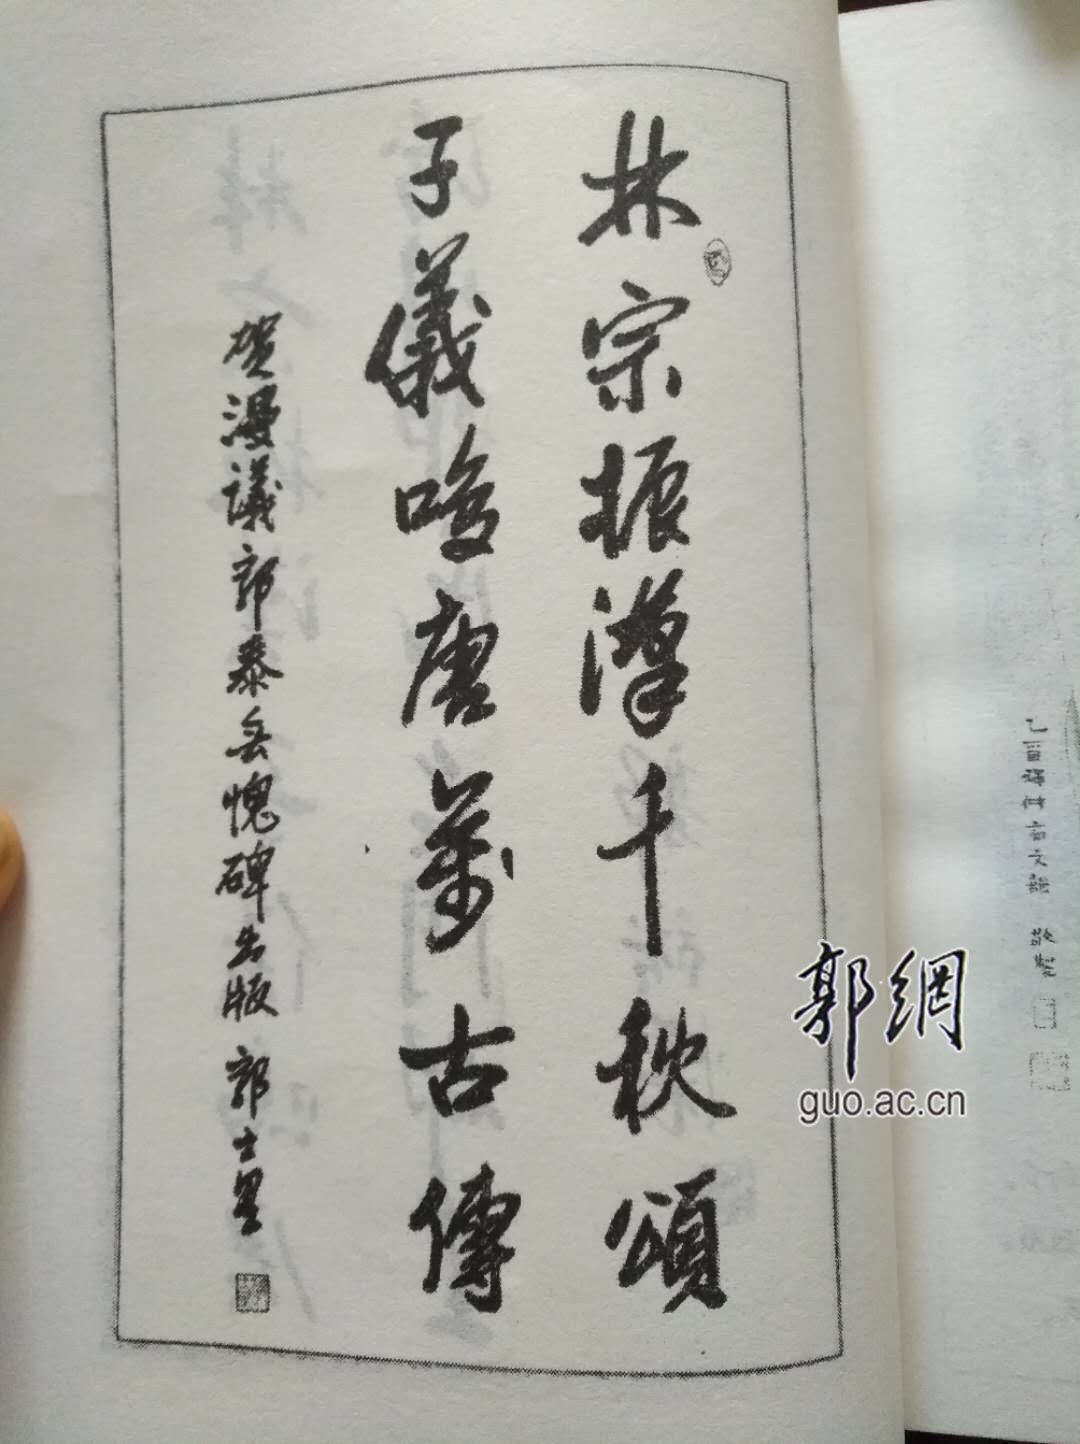 林宗振漢千秋頌
子儀鳴唐萬古傳
贺漫議郭泰無愧碑出版 郭士星
郭網
guo.ac.cn